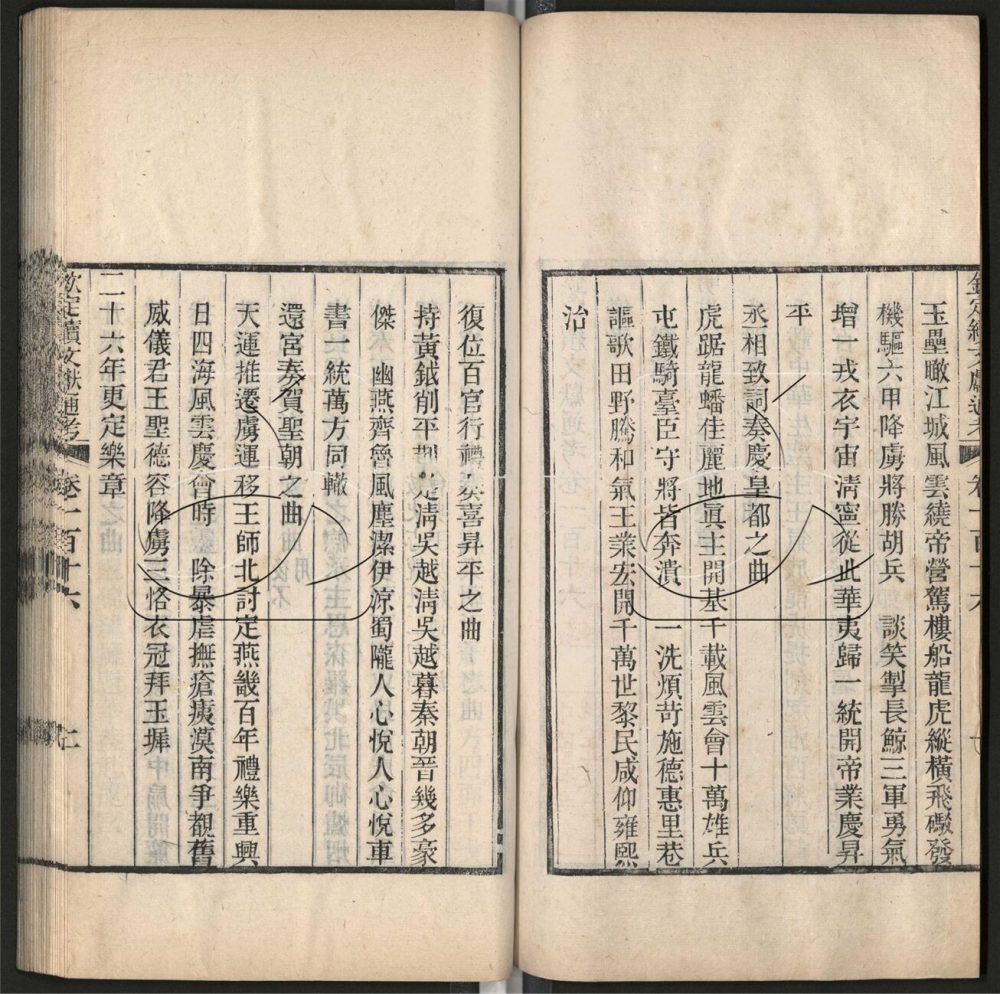 玉壘瞰江城風雲繞帝營駕樓船龍虎縱橫飛礮發
機驅六甲降虜將勝胡兵　談笑掣長鯨三軍勇氣
增一戎衣宇宙清寧從此華夷歸一統開帝業慶昇
平
丞相致詞奏慶皇都之曲
虎踞龍蟠佳麗地眞主開基千載風雲會十萬雄兵
屯鐵騎臺臣守將皆奔潰　一洗煩苛施德惠里巷
謳歌田野騰和氣王業宏開千萬世黎民咸仰雍熙
治
復位百官行禮奏喜昇平之曲
持黃鉞削平清吳越清吳越暮秦朝晉幾多豪
傑　幽燕齊魯風塵潔伊凉蜀隴人心悅人心悅車
書一統萬方同轍
還宮奏賀聖朝之曲
天運推遷虜運移王師北討定燕畿百年禮樂重興
日四海風雲慶會時　除暴虐撫瘡痍漠南爭覩舊
威儀君王聖德容降虜三恪衣冠拜玉墀
二十六年更定樂章
欽定續文獻通考　卷一百十六